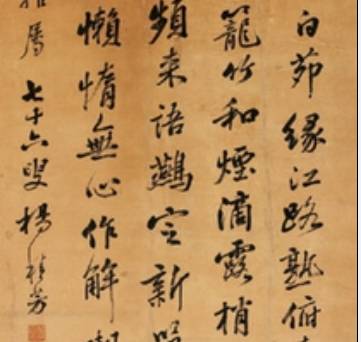 白茆緣江路熟俯
籠竹和煙滴露梢
頻来語鷰定新
懶惰無心作解
雅屬 七十六叟楊